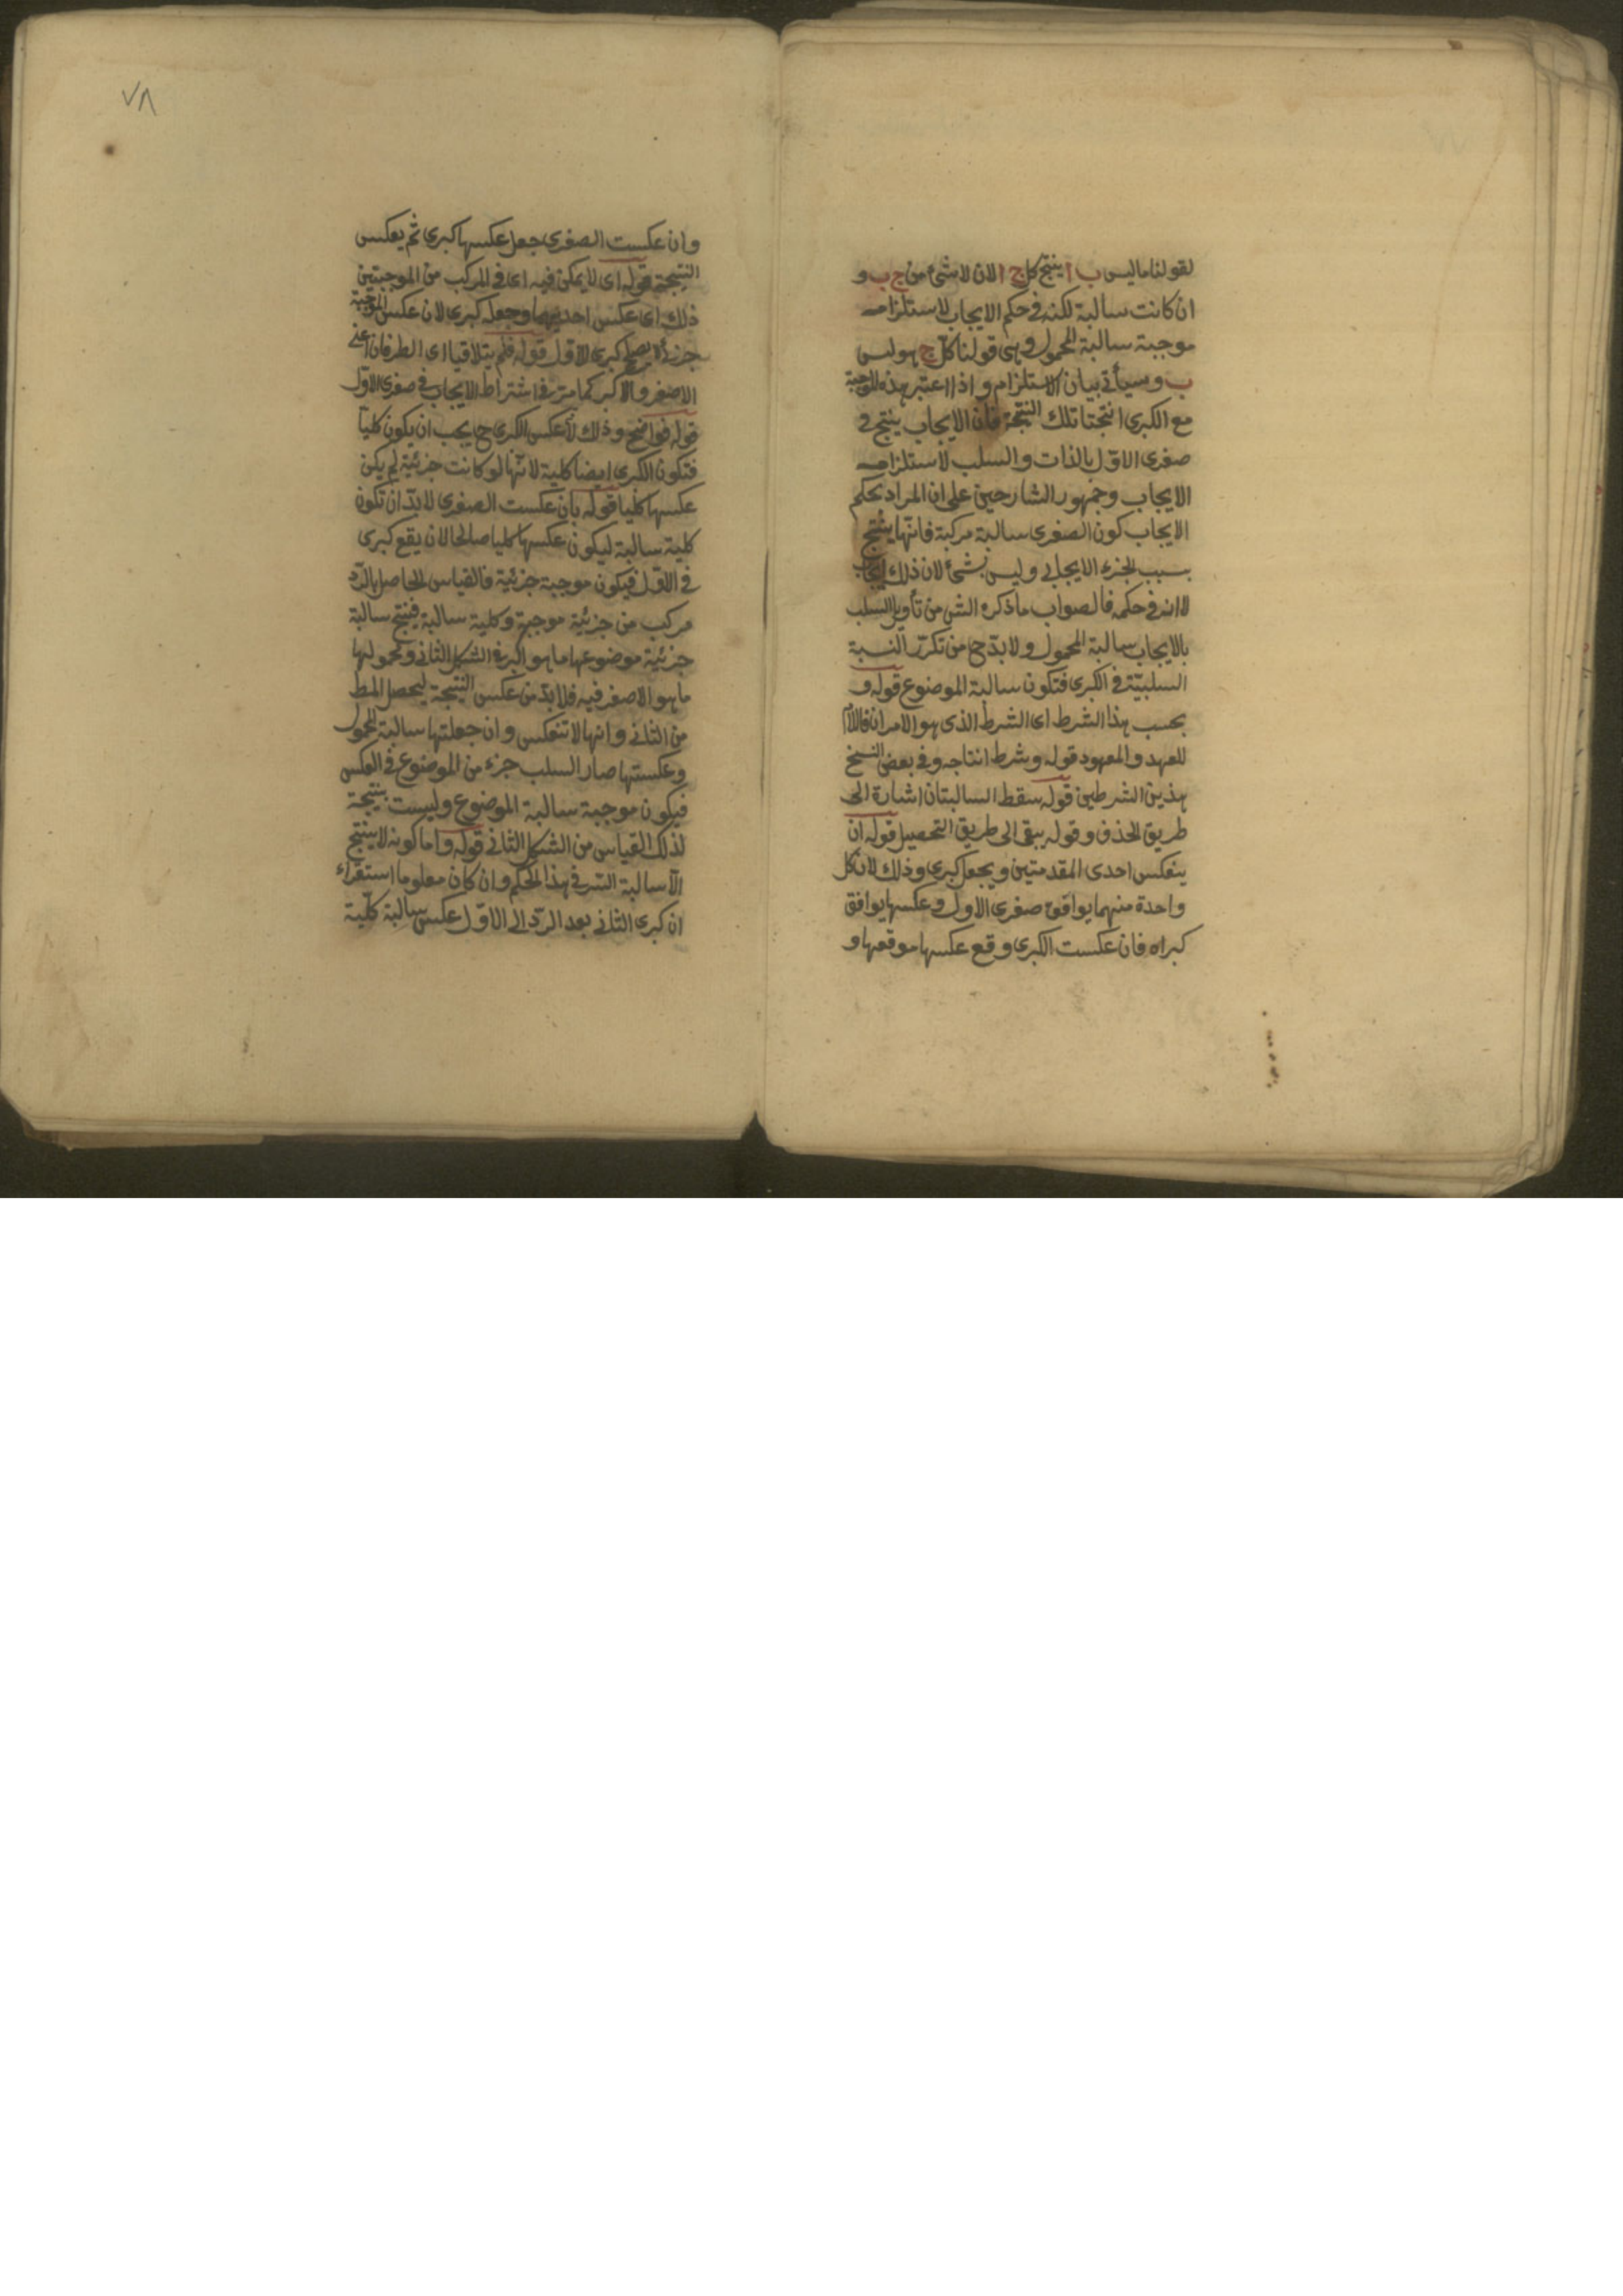 لقولنا ما ليس ب ا ينتج كل ج ا لان لا شئ من ج ب و
ان كانت سالبة لكنه في حكم الايجاب لاستلزامه
موجبة سالبة المحمول وهي قولنا كل ج هو ليس
ب وسيأتي بيان الاستلزام واذا اعتبر هذه الموجبة
مع الكبرى انتجتا تلك النتيجة فان الايجاب ينتج في
صغرى الاوّل بالذات والسلب لاستلزامه
الايجاب وجمهور الشارحين على ان المراد بحكم
الايجاب كون الصغرى سالبة مركبة فانّها ينتج
بسبب الجزء الايجابي وليس بشئ لان ذلك ايجاب
لا انه في حكمه فالصواب ما ذكره الش من تأويل السلب
بالايجاب سالبة المحمول ولا بدّ ح من تكرّر النسبة
السلبيّة في الكبرى فتكون سالبة الموضوع قوله و
بحسب هذا الشرط اى الشرط الذى هو الامران فاللام
للعهد والمعهود قوله وشرط انتاجه وفي بعض النسخ
هذين الشرطين قوله سقط السالبتان اشارة الى
طريق الحذف وقوله يبقى الى طريق التحصيل قوله ان
ينعكس احدى المقدمتين ويجعل كبرى وذلك لان كل
واحدة منهما يوافق صغرى الاول وعكسها يوافق
كبراه فان عكست الكبرى وقع عكسها موقعها و
٧٨
وان عكست الصغرى جعل عكسها كبرى ثم يعكس
النتيجة قوله اى لا يمكن فيه اى في المركب من الموجبتين
ذلك اى عكس احديهما وجعله كبرى لان عكس الموجبة
جزئى لا يصلح كبرى للاوّل قوله فلم يتلاقيا اى الطرفان اعنى
الاصغر والاكبر كما مرّ في اشتراط الايجاب في صغرى الاوّل
قوله فواضح وذلك لأن عكس الكبرى ح يجب ان يكون كلياً
فتكون الكبرى ايضا كلية لانّها لو كانت جزئية لم يكن
عكسها كليا قوله بأن عكست الصغرى لا بدّ ان تكون
كلية سالبة ليكون عكسها كليا صالحا لان يقع كبرى
في الاوّل فيكون موجبة جزئية فالقياس الحاصل بالرّد
مركب من جزئية موجبة وكلية سالبة فينتج سالبة
جزئية موضوعها ما هو اكبر في الشكل الثاني ومحمولها
ما هو الاصغر فيه فلا بدّ من عكس النتيجة ليحصل المط
من الثاني وانها لا تنعكس وان جعلتها سالبة المحمول
وعكستها صار السلب جزء من الموضوع في العكس
فيكون موجبة سالبة الموضوع وليست بنتيجة
لذلك القياس من الشكل الثاني قوله واما كونه لا ينتج
الّا سالبة السّر في هذا الحكم وان كان معلوما استقراء
ان كبرى الثاني بعد الردّ الى الاوّل عكس سالبة كلّية